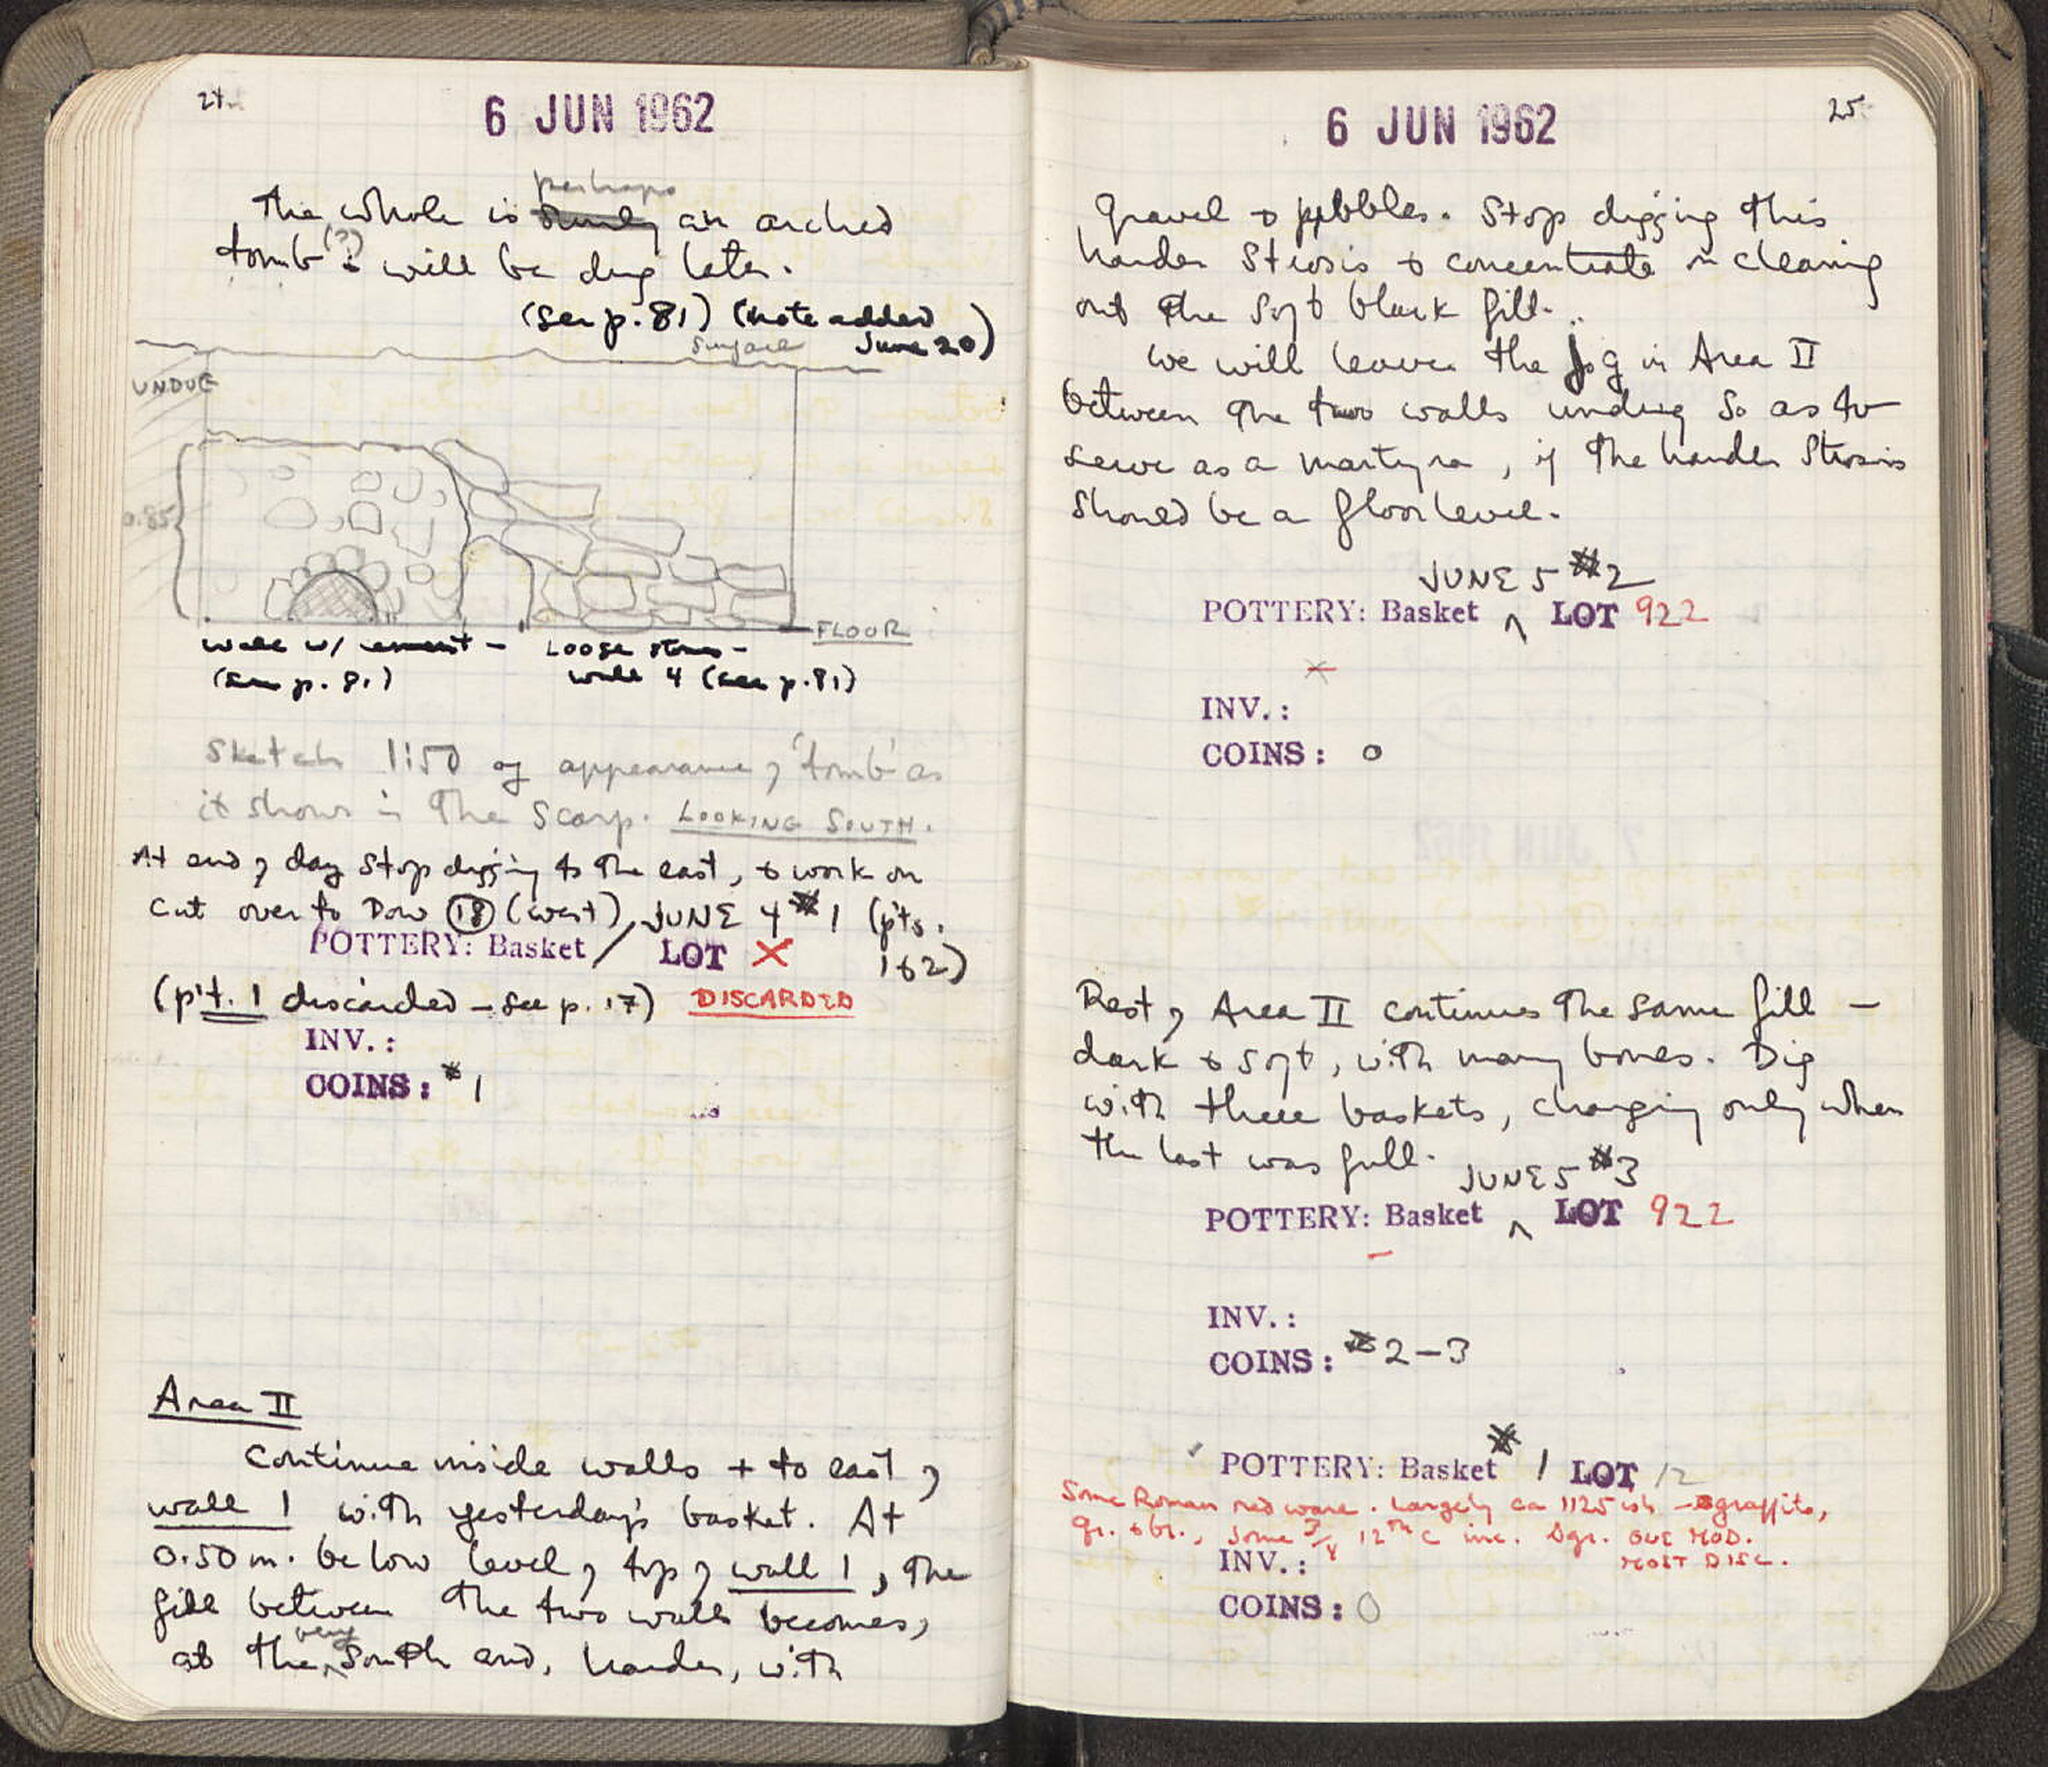 24
6 JUN 1962
perhaps
The whole is surely an arched
tomb (?) & will be dug later.
(See p. 81) (note added
June 20)
surface
UNDUG
0.85
FLOOR
wall w/ cement –
(see p. 81)
Loose stones –
wall 4 (see p. 81)
Sketch 1:50 of appearance of 'tomb' as
it shows in the scarp. LOOKING SOUTH.
At end of day stop digging to the east, & work on
cut over to Dow 18 (west)
JUNE 4 #1 (pts.
1 & 2)
POTTERY: Basket / LOT X
(pt. 1 discarded – see p. 17) DISCARDED
INV.:
COINS: #1
Area II
Continue inside walls + to east of
wall 1 with yesterday's basket. At
0.50 m. below level of top of wall 1, the
fill between the two walls becomes,
at the very South end, harder, with
25
6 JUN 1962
gravel & pebbles. Stop digging this
harder Strosis & concentrate on cleaning
out the soft black fill.
We will leave the jog in Area II
between the two walls undug so as to
serve as a martyra, if the harder Strosis
should be a floor level.
JUNE 5 #2
POTTERY: Basket ^ LOT 922
INV.:
COINS: 0
Rest of Area II continues the same fill –
dark & soft, with many bones. Dig
with three baskets, changing only when
the last was full.
JUNE 5 #3
POTTERY: Basket ^ LOT 922
INV.:
COINS: #2–3
POTTERY: Basket #1 LOT 12
Some Roman red ware. Largely ca 1125 ish – sgraffito,
gr. & br., some 12th C inc. Dgr. ONE MOD.
MOST DISC.
INV.:
COINS: 0